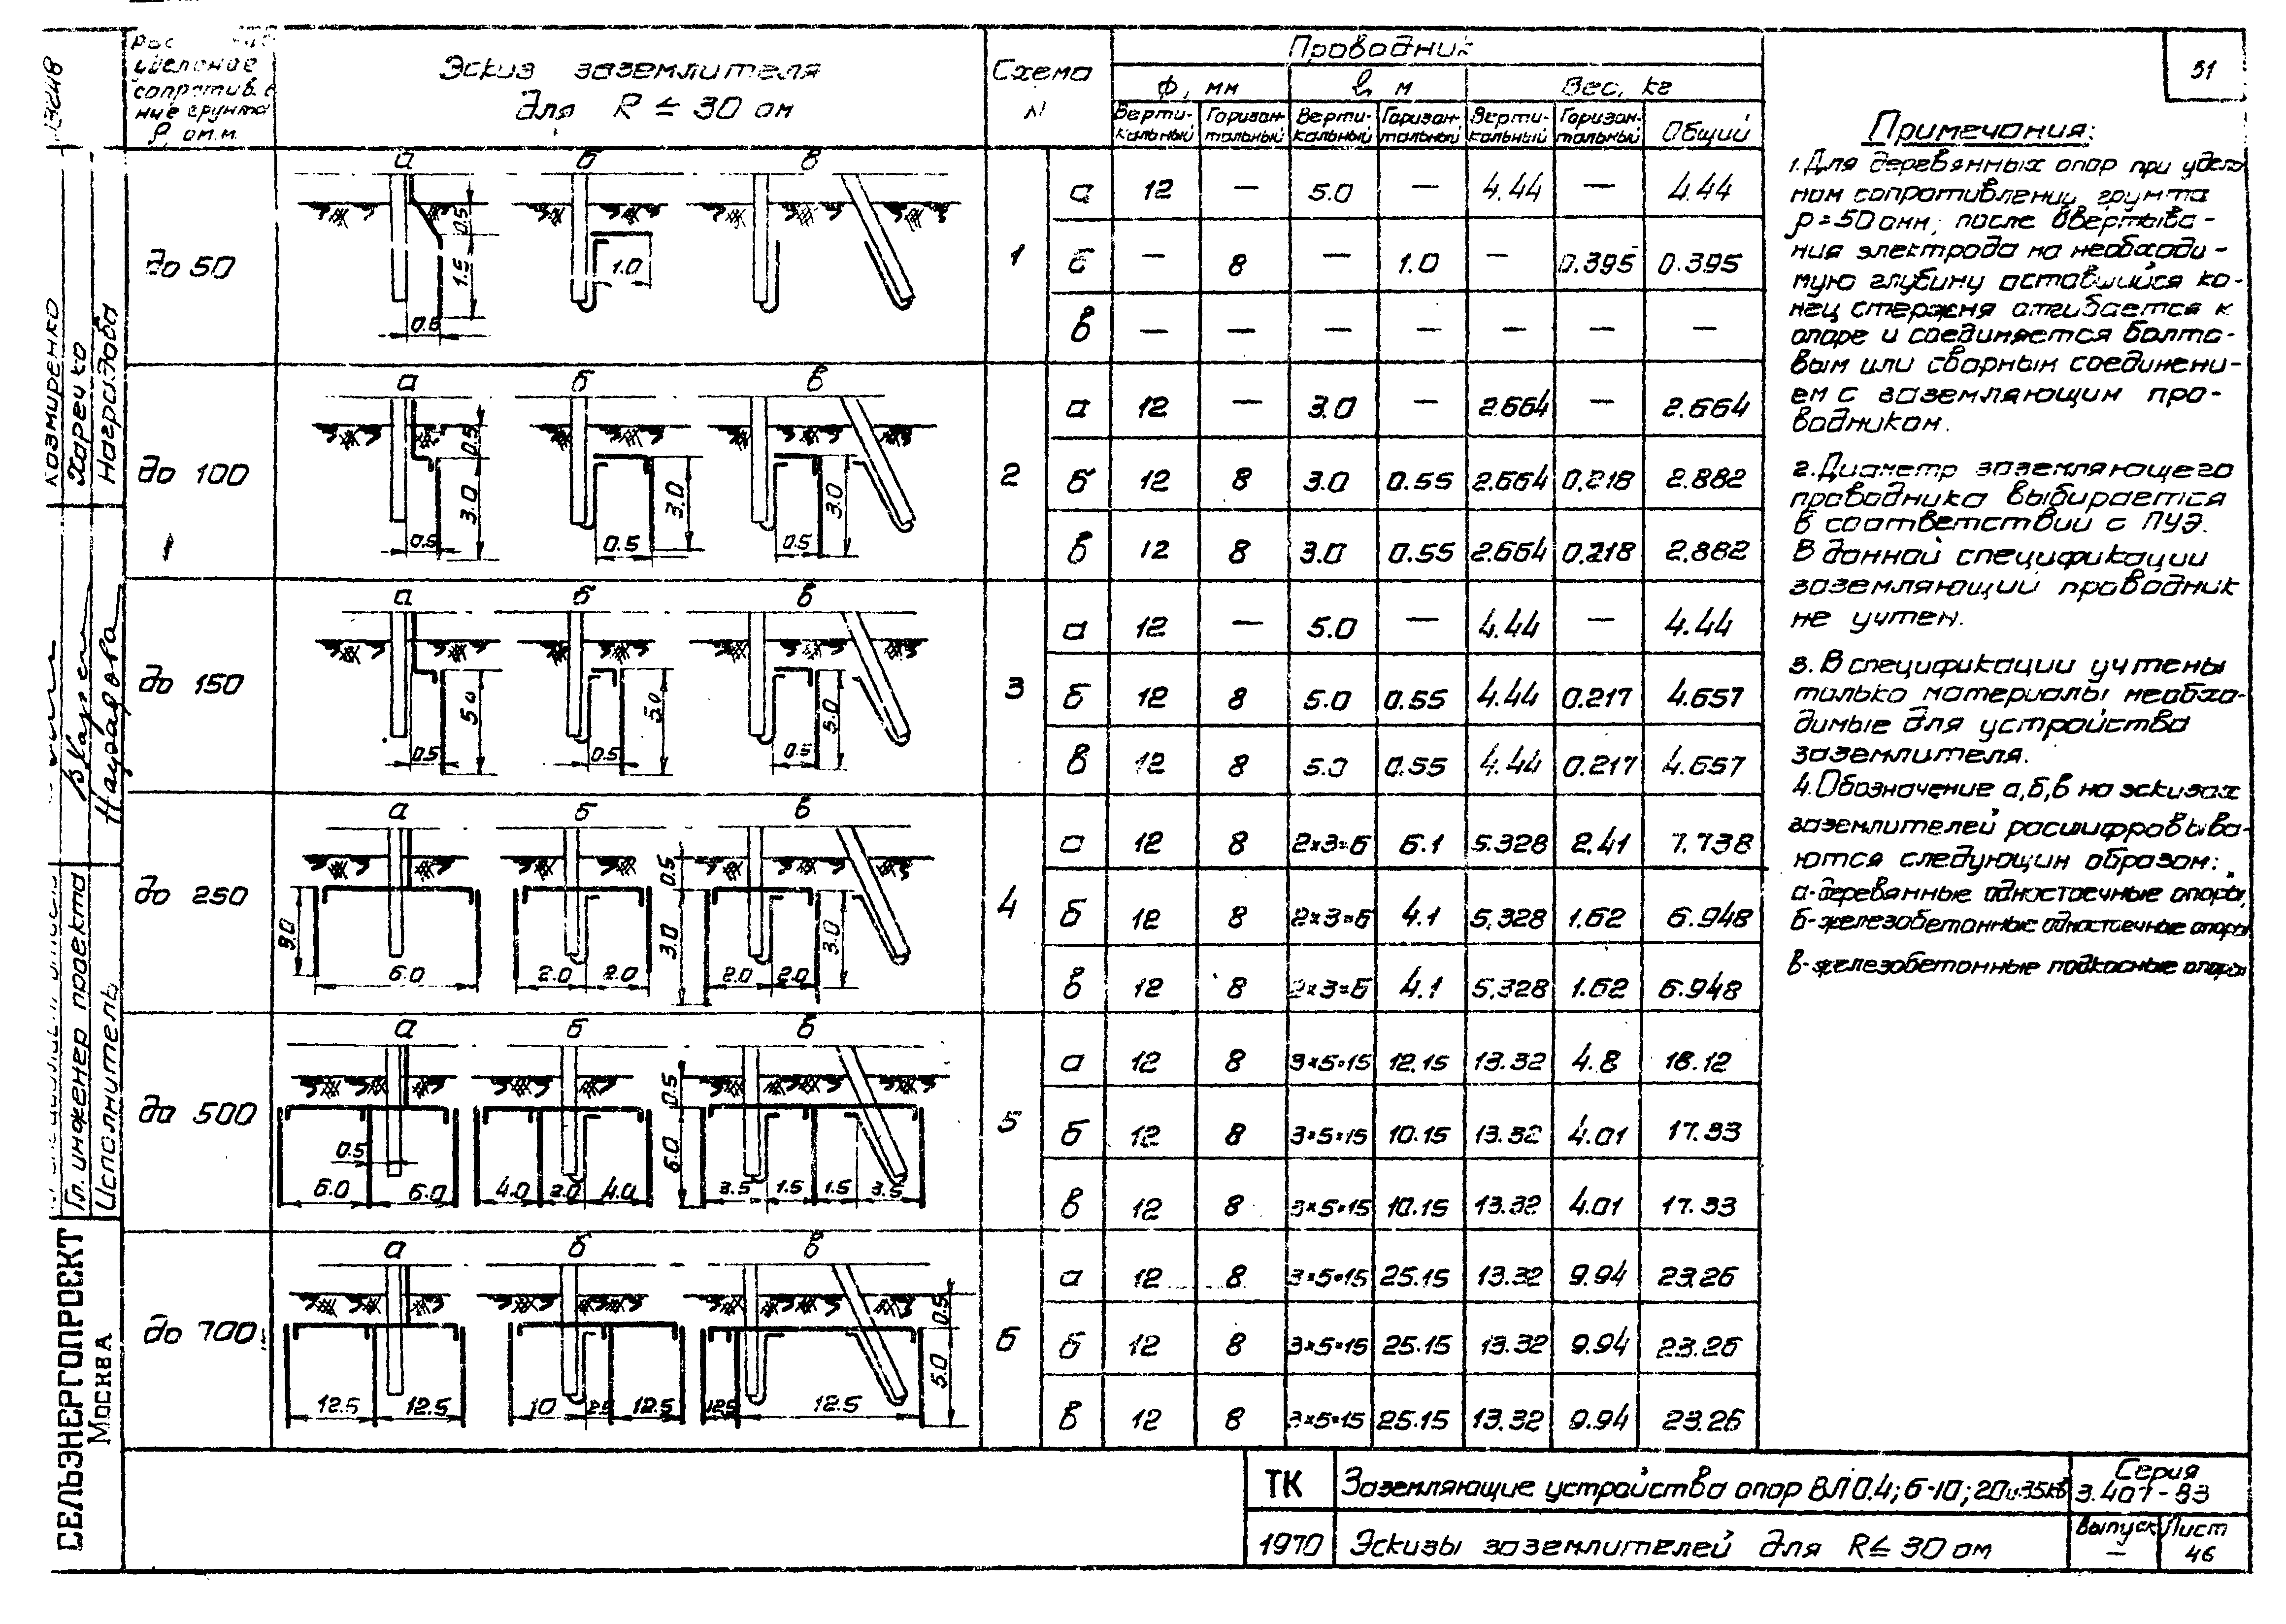 51
удельное
сопротивле
ние грунта
ρ, ом.м.
Эскиз заземлителя
для R ≤ 30 ом
Схема
N
Проводник
ф, мм
l, м
Вес, кг
Верти-
кальный
Горизон-
тальный
Верти-
кальный
Горизон-
тальный
Верти-
кальный
Горизон-
тальный
Общий
до 50
а б в
0.5
1.5
0.5
1.0
1
а 12 — 5.0 — 4.44 — 4.44
б — 8 — 1.0 — 0.395 0.395
в — — — — — — —
до 100
а б в
0.5
3.0
0.5
3.0
0.5
3.0
0.5
2
а 12 — 3.0 — 2.664 — 2.664
б 12 8 3.0 0.55 2.664 0.218 2.882
в 12 8 3.0 0.55 2.664 0.218 2.882
до 150
а б в
5.0
0.5
5.0
0.5
5.0
0.5
3
а 12 — 5.0 — 4.44 — 4.44
б 12 8 5.0 0.55 4.44 0.217 4.657
в 12 8 5.0 0.55 4.44 0.217 4.657
до 250
а б в
3.0
6.0
2.0 2.0
0.5
3.0
2.0 2.0
3.0
4
а 12 8 2×3=6 6.1 5.328 2.41 7.738
б 12 8 2×3=6 4.1 5.328 1.62 6.948
в 12 8 2×3=6 4.1 5.328 1.62 6.948
до 500
а б в
0.5
6.0 6.0
4.0 2.0 4.0
0.5
6.0
3.5 1.5 1.5 3.5
5
а 12 8 3×5=15 12.15 13.32 4.8 18.12
б 12 8 3×5=15 10.15 13.32 4.01 17.33
в 12 8 3×5=15 10.15 13.32 4.01 17.33
до 700
а б в
12.5 12.5
10 2.5 12.5
12.5 12.5
0.5
5.0
6
а 12 8 3×5=15 25.15 13.32 9.94 23.26
б 12 8 3×5=15 25.15 13.32 9.94 23.26
в 12 8 3×5=15 25.15 13.32 9.94 23.26
Примечания:
1. Для деревянных опор при удель
ном сопротивлении грунта
ρ=50 омм, после ввертыва-
ния электрода на необходи-
мую глубину оставшийся ко-
нец стержня отгибается к
опоре и соединяется болто-
вым или сварным соединени-
ем с заземляющим про-
водником.
2. Диаметр заземляющего
проводника выбирается
в соответствии с ПУЭ.
В данной спецификации
заземляющий проводник
не учтен.
3. В спецификации учтены
только материалы необхо-
димые для устройства
заземлителя.
4. Обозначение а,б,в на эскизах
заземлителей расшифровыва-
ются следующим образом:
а-деревянные одностоечные опоры,
б-железобетонные одностоечные опоры
в-железобетонные подкосные опоры
ТК
Заземляющие устройства опор ВЛ 0.4; 6-10; 20 и 35 кв
Серия
3.407-83
1970
Эскизы заземлителей для R ≤ 30 ом
Выпуск
—
Лист
46
Козмиренко
Харечко
Гл. инженер проекта
Исполнитель
СЕЛЬЭНЕРГОПРОЕКТ
МОСКВА